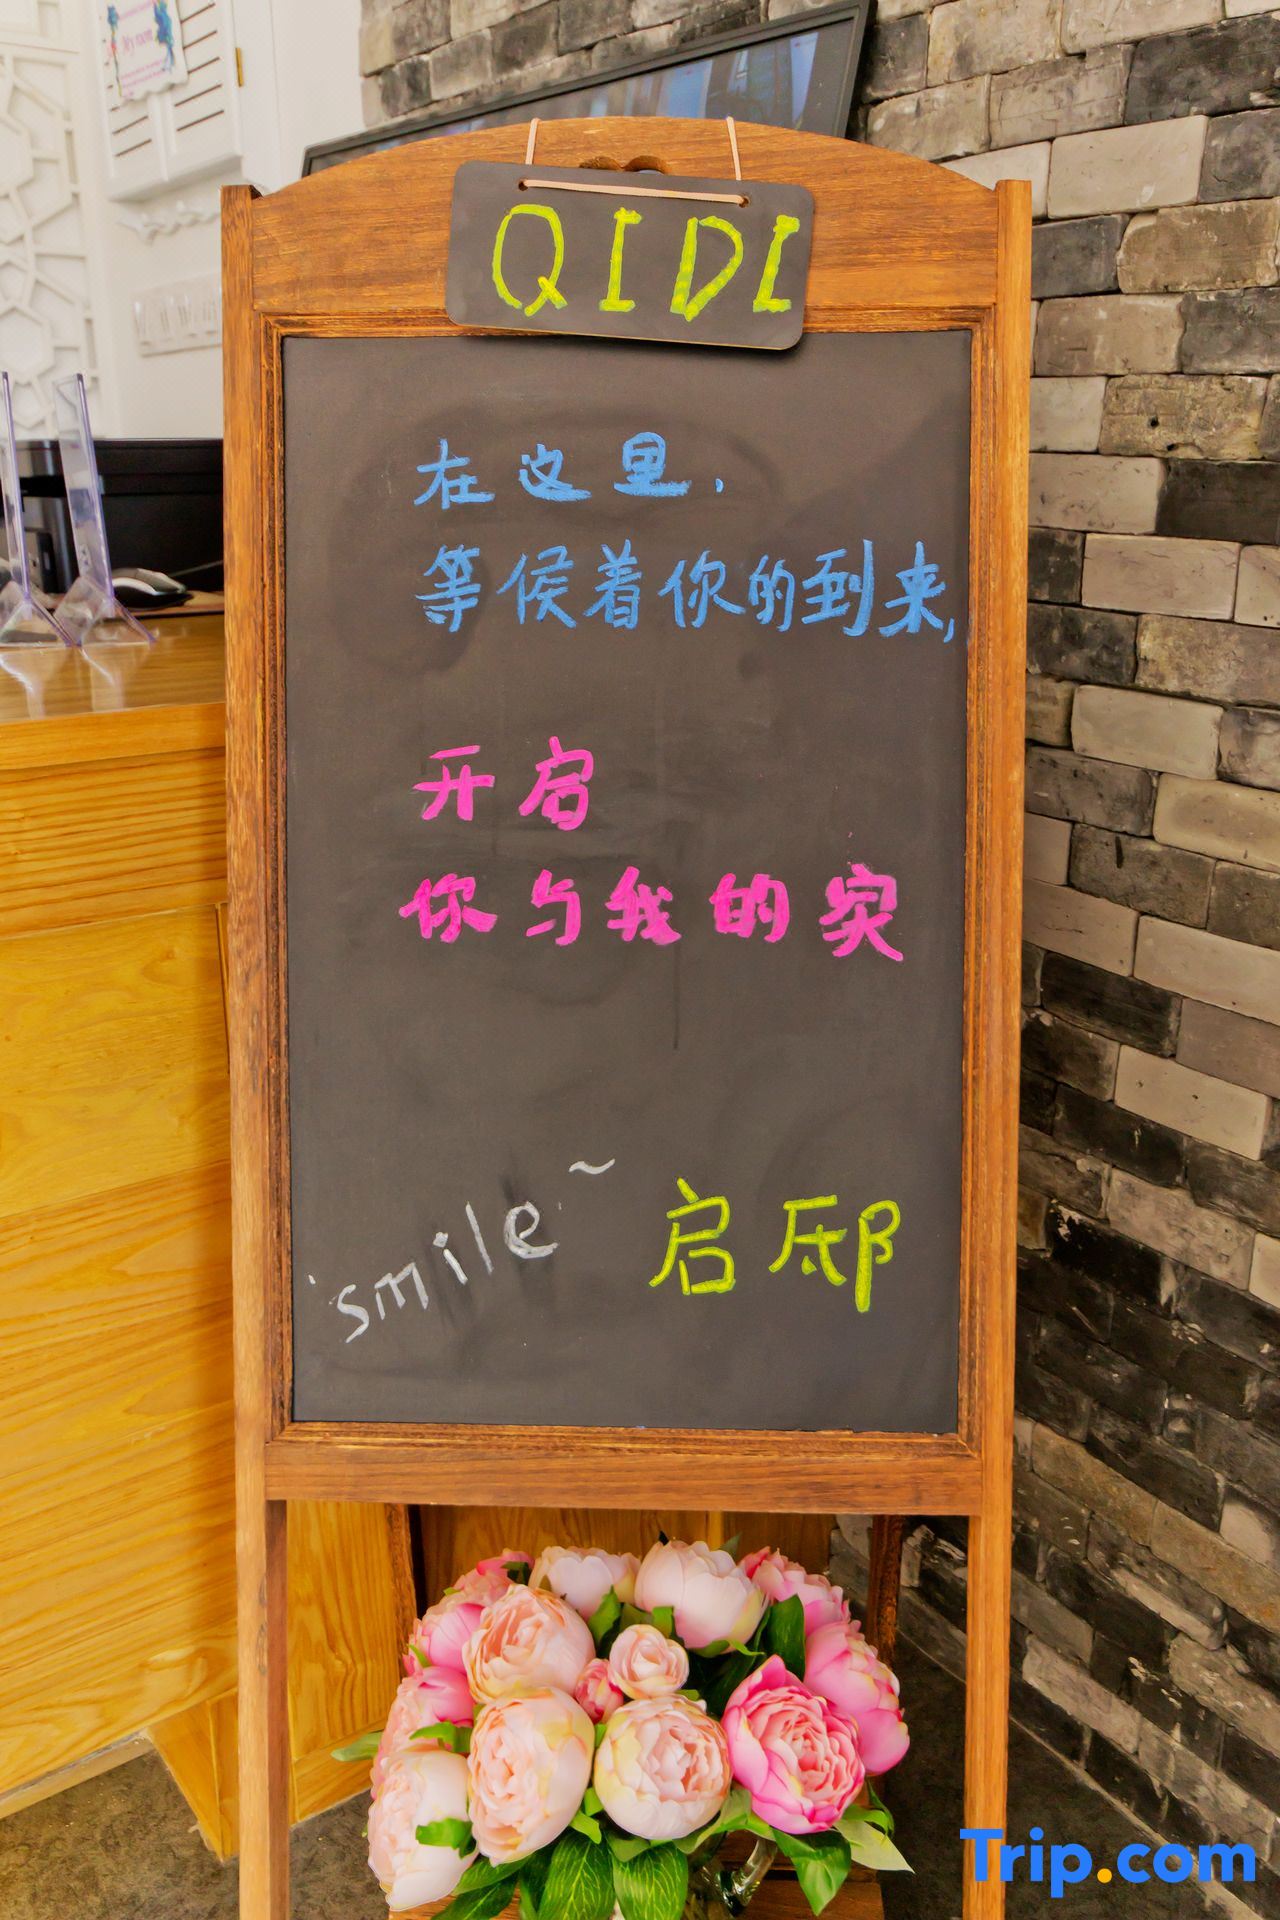 My room
QIDI
在这里.
等候着你的到来,
开启
你与我的家
smile~
启邸
Trip.com